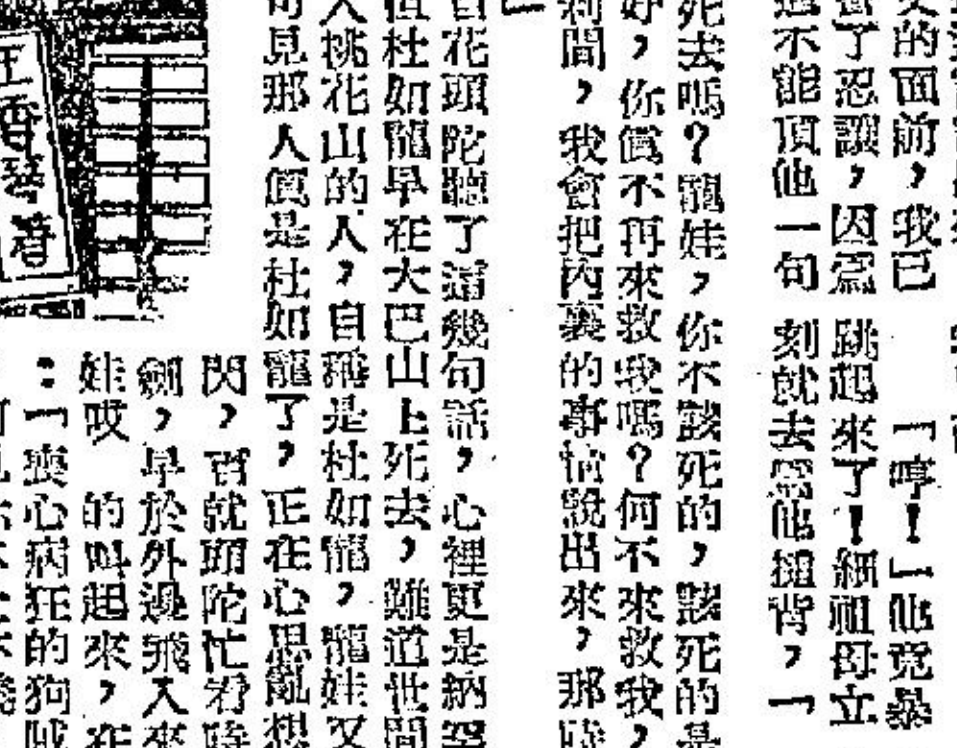 的面前，我已
了忍讓，因爲
不能頂他一句
「哼！」他竟暴
跳起來了！細祖母立
刻就去爲他搥背，一
死去嗎？龍娃，你不該死的，該死的是
好，你眞不再來救我嗎？何不來救我，
刹間，我會把內裏的事情說出來，那時
」
百花頭陀聽了這幾句話，心裡更是納罕
但杜如龍早在大巴山上死去，難道世間
人桃花山的人，自稱是杜如龍，龍娃又
可見那人眞是杜如龍了，正在心思亂想
閃，百就頭陀忙看時
劍，早於外邊飛入來
娃哎　的叫起來，在
：「喪心病狂的狗賊
王香琴着